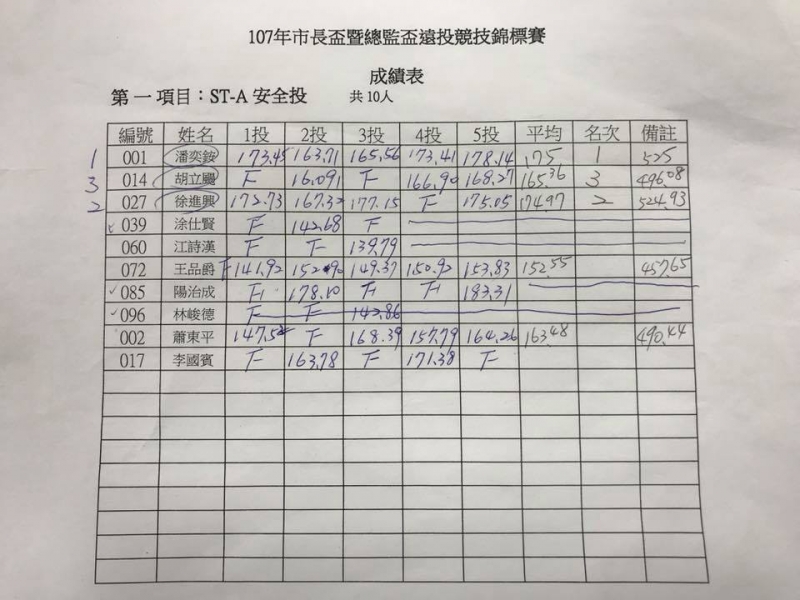 107年市長盃暨總監盃遠投競技錦標賽
成績表
第一項目：ST-A 安全投 共10人
編號 姓名 1投 2投 3投 4投 5投 平均 名次 備註
1 001 潘奕銨 173.45 163.71 165.56 173.41 178.14 175 1 525
3 014 胡立颺 F 16.091 F 166.90 168.27 165.36 3 496.08
2 027 徐進興 172.73 167.32 177.15 F 175.05 174.97 2 524.93
039 涂仕賢 F 142.68 F
060 江詩漢 F F 139.79
072 王品爵 F 141.92 149.37 150.92 153.83 152.55 457.65
✓ 085 陽治成 F 178.10 F F 183.31
✓ 096 林峻德 F F 142.86
002 蕭東平 F 168.39 157.79 164.26 163.48 490.44
017 李國賓 F 163.78 F 171.38 F